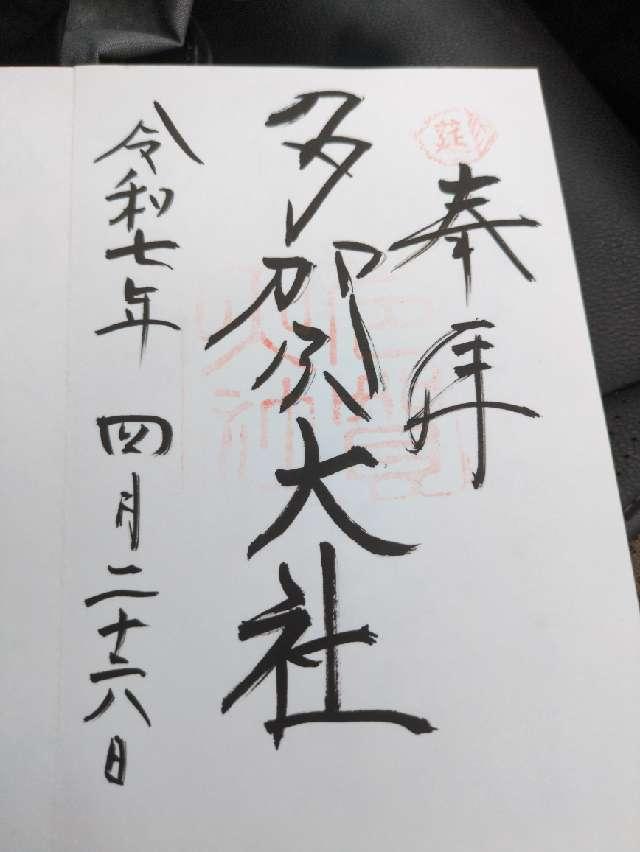 奉拝
多賀大社
令和七年 四月二十六日